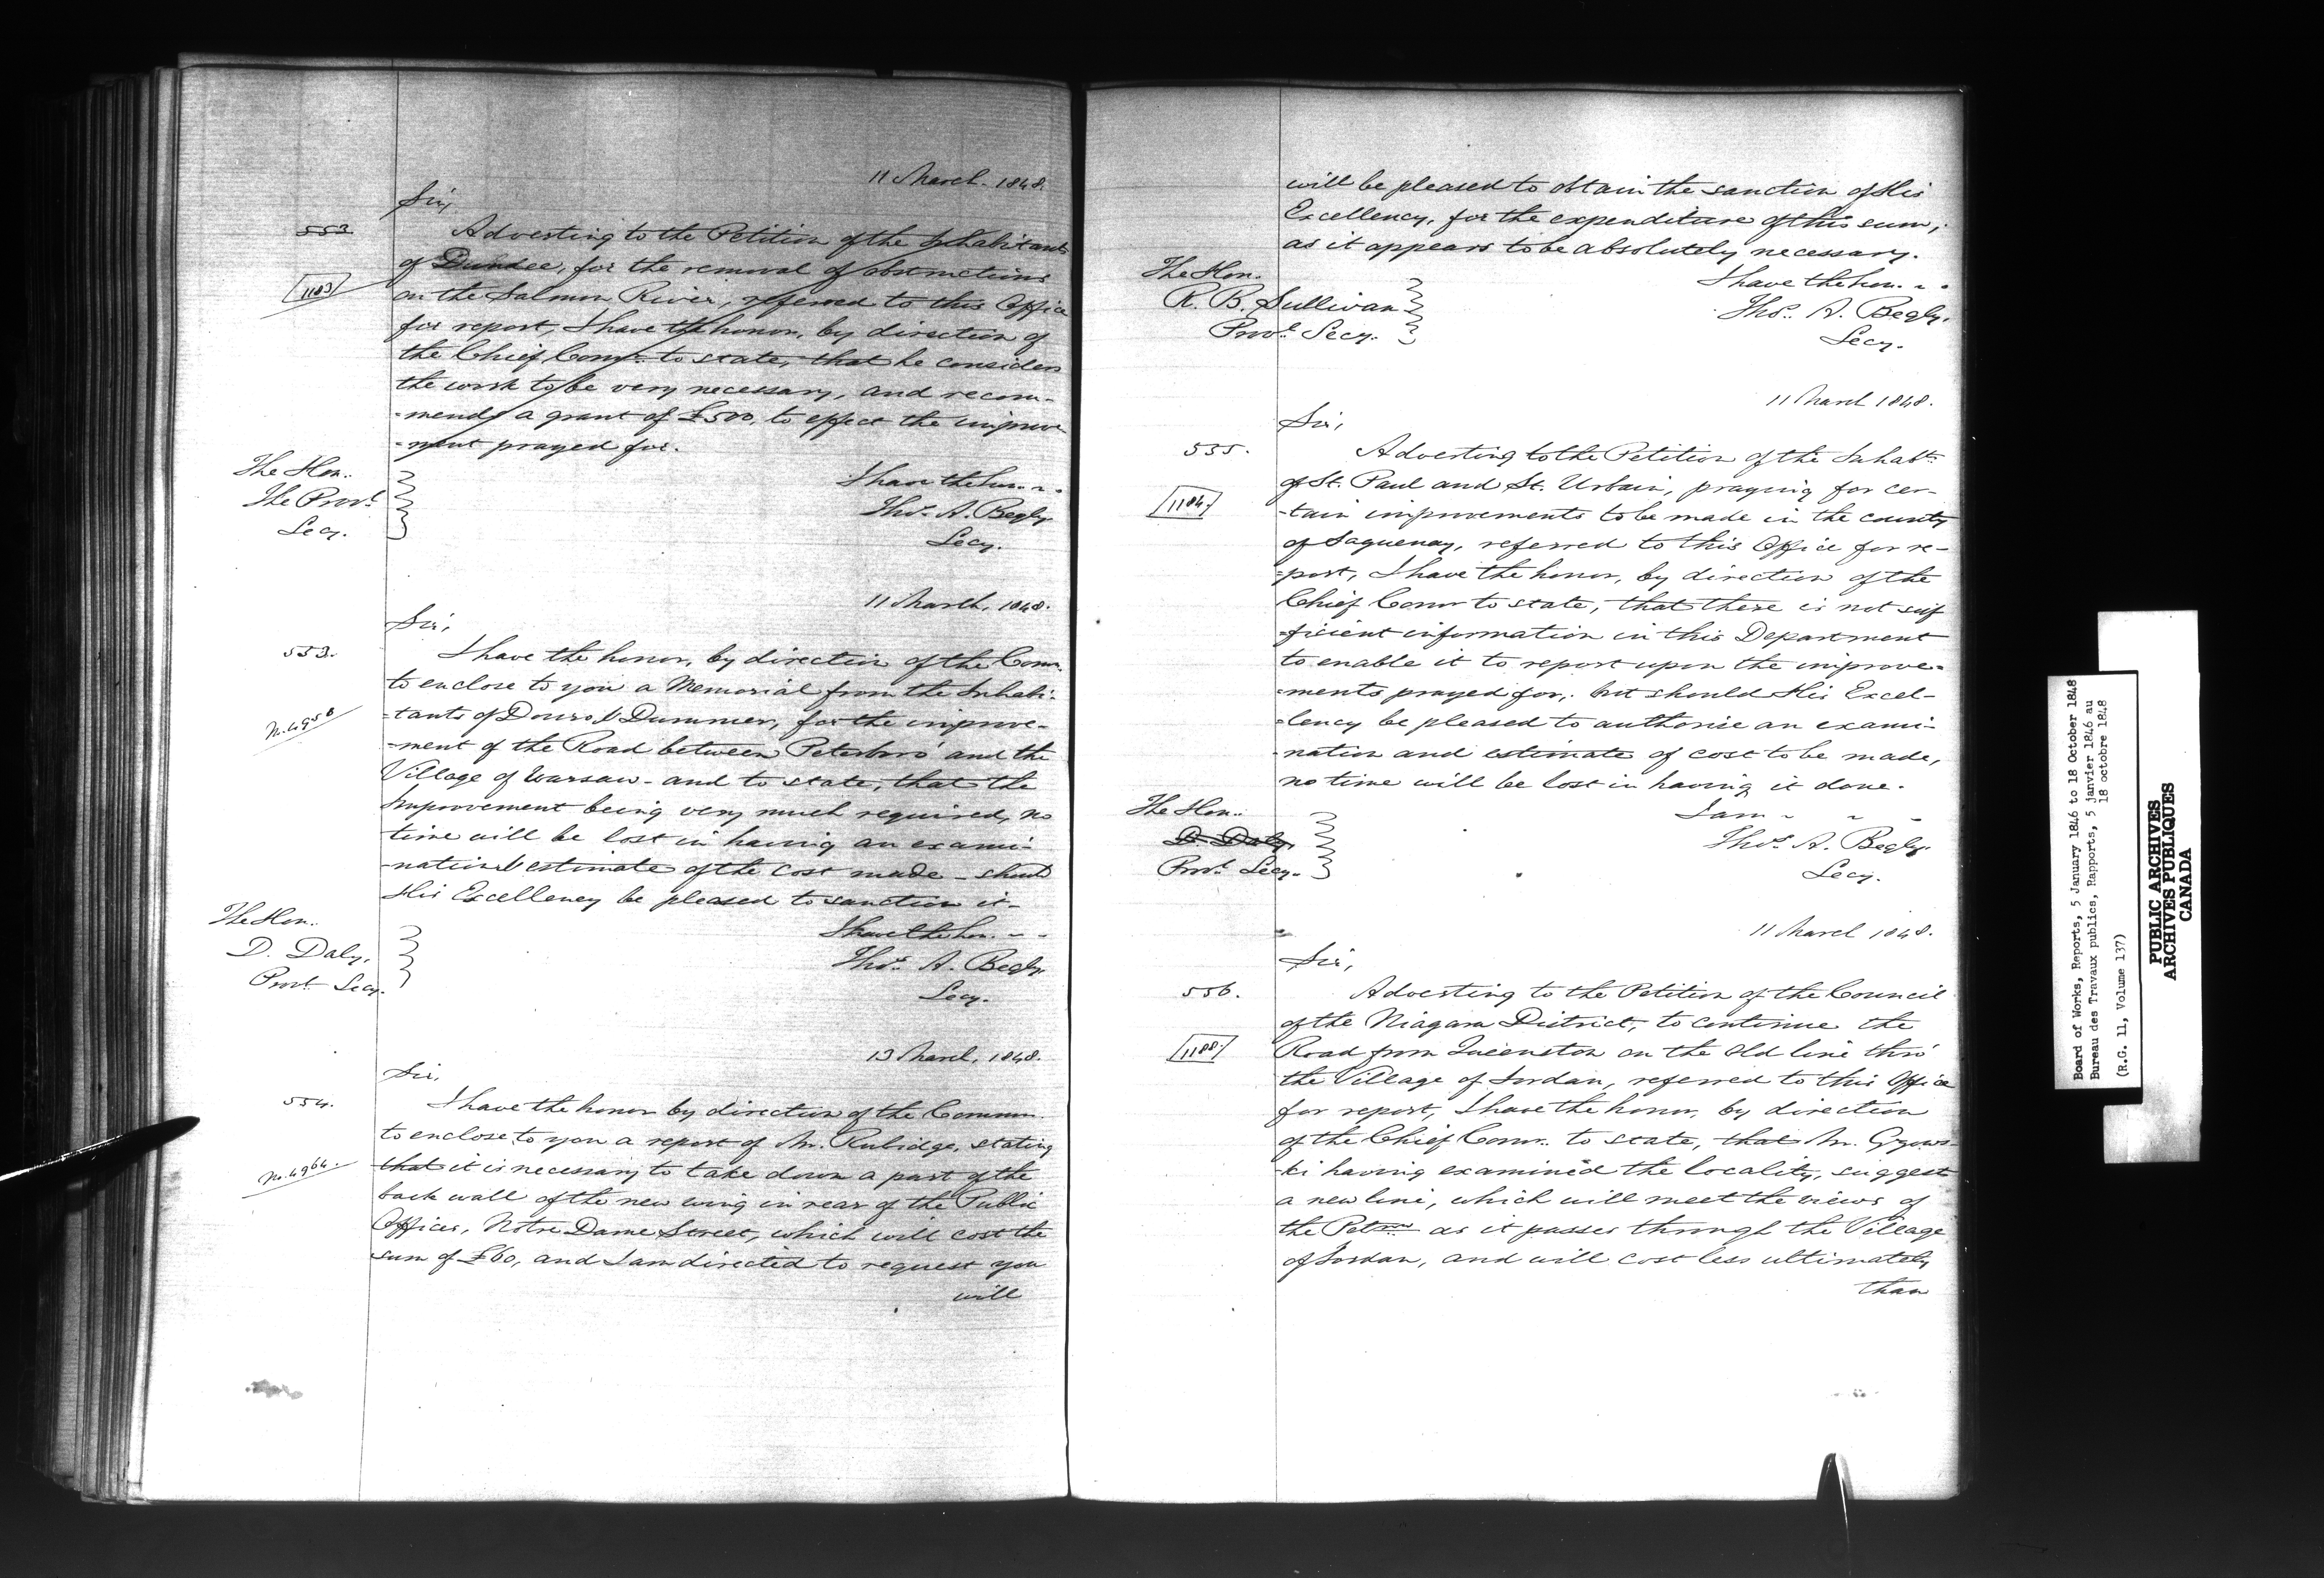 11 March. 1848.
Sir,
553
Adverting to the Petition of the Inhabitants
of Dundee, for the removal of obstructions
1183
on the Salmon River, referred to this Office
for report, I have the honor, by direction of
the Chief Comr. to state, that he considers
the work to be very necessary, and recom-
-mends a grant of £500, to effect the improve
-ment prayed for.
The Hon:
The Provl
Secy.
I have the hon. " "
Thos. A. Begly
Secy.
11 March, 1848.
Sir,
553.
I have the honor, by direction of the Comr.
to enclose to you a Memorial from the Inhabi-
-tants of Douro & Dummer, for the improve-
No. 4958
-ment of the Road between Peterboro' and the
Village of Warsaw - and to state, that the
Improvement being very much required, no
time will be lost in having an exami-
-nation & estimate of the cost made - should
His Excellency be pleased to sanction it -
The Hon:
D. Daly,
Provl Secy.
I have the hon. " "
Thos. A. Begly
Secy.
13 March, 1848.
Sir,
554.
I have the honor by direction of the Commr.
to enclose to you a report of Mr. Rubidge, stating
No. 4964
that it is necessary to take down a part of the
back wall of the new wing in rear of the Public
Offices, Notre Dame Street, which will cost the
sum of £60, and I am directed to request you
will
will be pleased to obtain the sanction of His
Excellency, for the expenditure of this sum,
as it appears to be absolutely necessary.
The Hon.
R. B. Sullivan
Provl. Secy.
I have the hon. " "
Thos. A. Begly.
Secy.
11 March 1848.
Sir,
555.
Adverting to the Petition of the Inhabts.
of St. Paul and St. Urbain, praying for cer-
1184
-tain improvements to be made in the county
of Saguenay, referred to this Office for re-
-port, I have the honor, by direction of the
Chief Comr to state, that there is not suf
-ficient information in this Department
to enable it to report upon the improve=
-ments prayed for, but should His Excel-
-lency be pleased to authorise an exami-
-nation and estimate of cost to be made,
no time will be lost in having it done.
The Hon:
D. Daly
Provl. Secy.
I am " " "
Thos. A. Begly.
Secy.
11 March 1848.
Sir,
556.
Adverting to the Petition of the Council
of the Niagara District, to continue the
1188
Road from Queenston on the old line thro'
the Village of Jordan, referred to this Office
for report, I have the honor, by direction
of the Chief Comr. to state, that Mr. Gzows-
-ki having examined the locality, suggest
a new line, which will meet the views of
the Petrs as it passes through the Village
of Jordan, and will cost less ultimately
than
Board of Works, Reports, 5 January 1846 to 18 October 1848
Bureau des Travaux publics, Rapports, 5 janvier 1846 au
18 octobre 1848
(R.G. 11, Volume 137)
PUBLIC ARCHIVES
ARCHIVES PUBLIQUES
CANADA